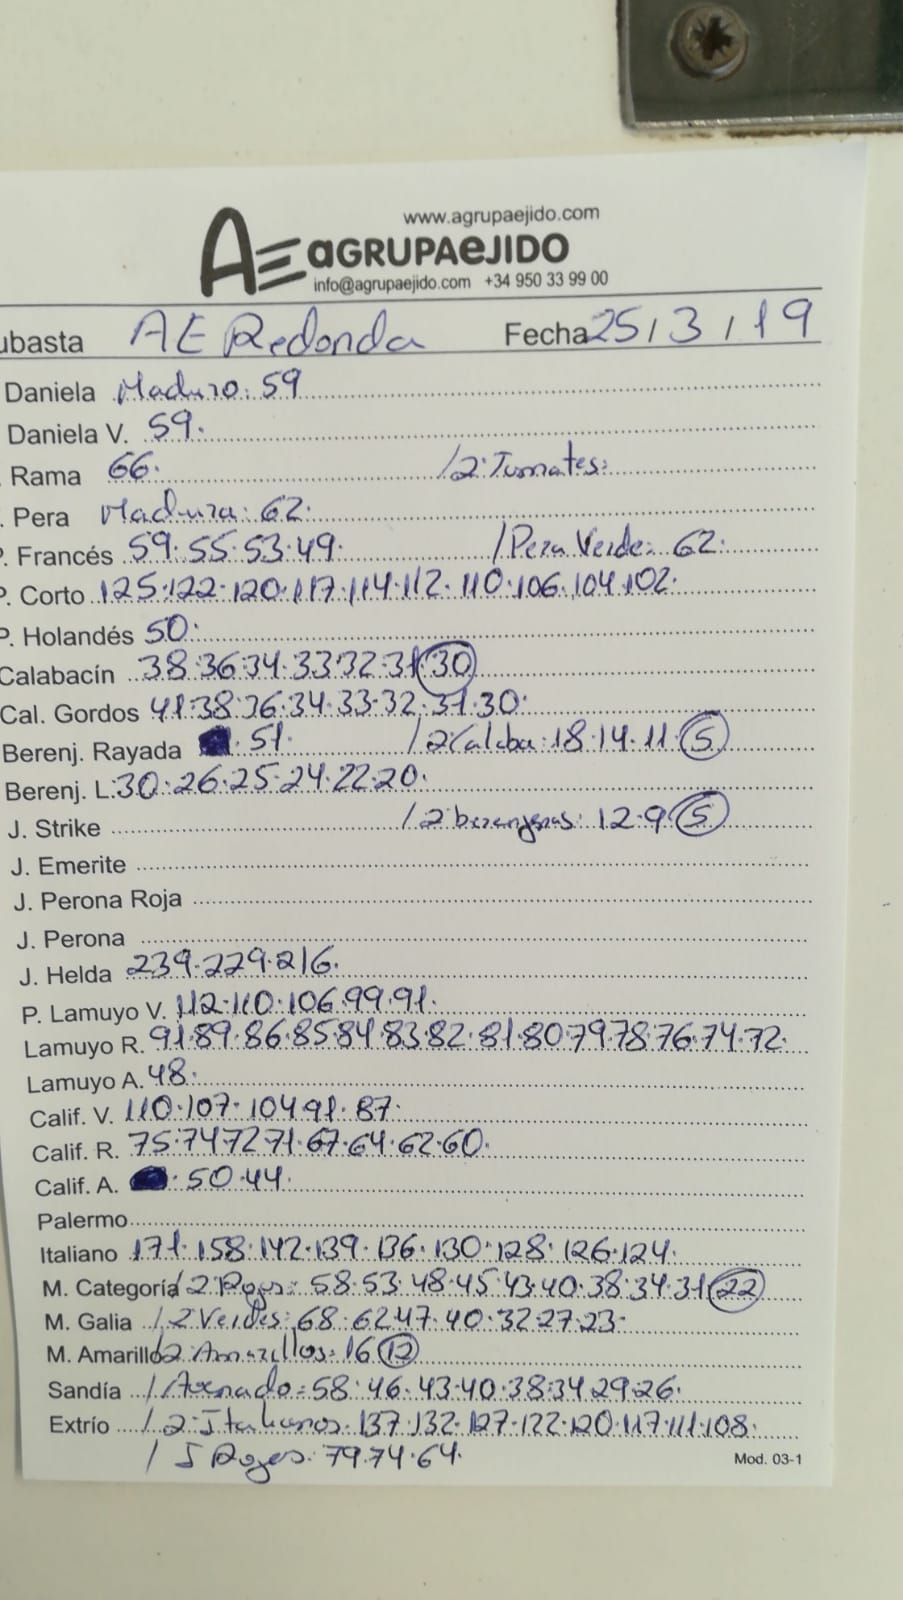 www.agrupaejido.com
AE aGRUPAeJIDO
info@agrupaejido.com +34 950 33 99 00
ubasta AE Redonda Fecha 25/3/19
Daniela Maduro: 59
Daniela V. 59.
Rama 66. /2ª Tomates:
. Pera Madura: 62.
P. Francés 59.55.53.49. /Pera Verde: 62.
P. Corto 125.122.120.117.114.112.110.106.104.102.
P. Holandés 50.
Calabacín 38.36.34.33.32.31.30
Cal. Gordos 41.38.36.34.33.32.31.30.
Berenj. Rayada .51. /2ª Calaba: 18.14.11.5
Berenj. L. 30.26.25.24.22.20.
J. Strike /2ª berenjenas: 12.9.5
J. Emerite
J. Perona Roja
J. Perona
J. Helda 239.229.216.
P. Lamuyo V. 112.110.106.99.91.
Lamuyo R. 91.89.86.85.84.83.82.81.80.79.78.76.74.72.
Lamuyo A. 48.
Calif. V. 110.107.104.91.87.
Calif. R. 75.74.72.71.67.64.62.60.
Calif. A. .50.44.
Palermo
Italiano 171.158.142.139.136.130.128.126.124.
M. Categoría /2ª Rojos: 58.53.48.45.43.40.38.34.31.22
M. Galia /2ª Verdes: 68.62.47.40.32.27.23.
M. Amarillo /2ª Amarillos: 16.12
Sandía /Asenado: 58.46.43.40.38.34.29.26.
Extrío /2ª Italianos: 137.132.127.122.120.117.111.108.
/ J Rojos: 79.74.64.
Mod. 03-1